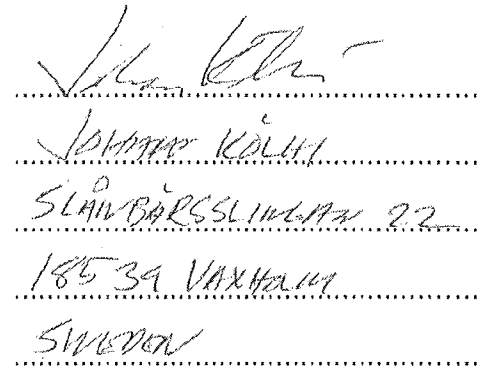 JOHAN KÖLHI
SLÅNBÄRSSLINGAN 22
18539 VAXHOLM
SWEDEN